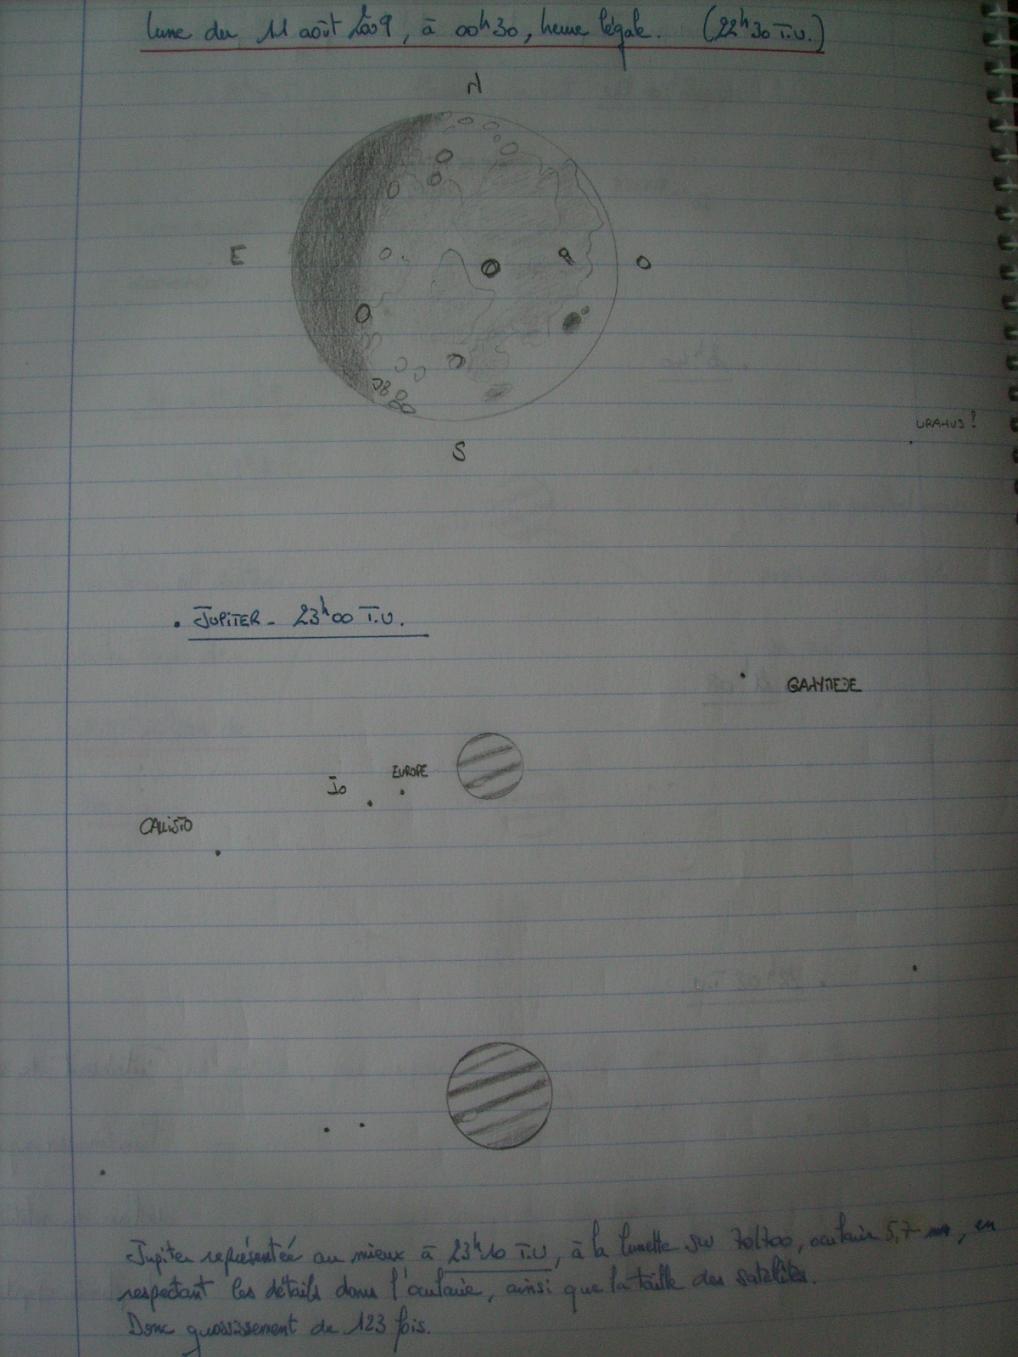 lune du 11 août 2009, à 00h30, heure légale. (22h30 T.U.)
N
E
O
S
URANUS ?
. JUPITER - 23h00 T.U.
GANYMEDE
EUROPE
Io
CALLISTO
Jupiter représentée au mieux à 23h10 T.U, à la lunette SW 70/700, oculaire 5,7 mm, en
respectant les détails dans l'oculaire, ainsi que la taille des satelites.
Donc grossissement de 123 fois.